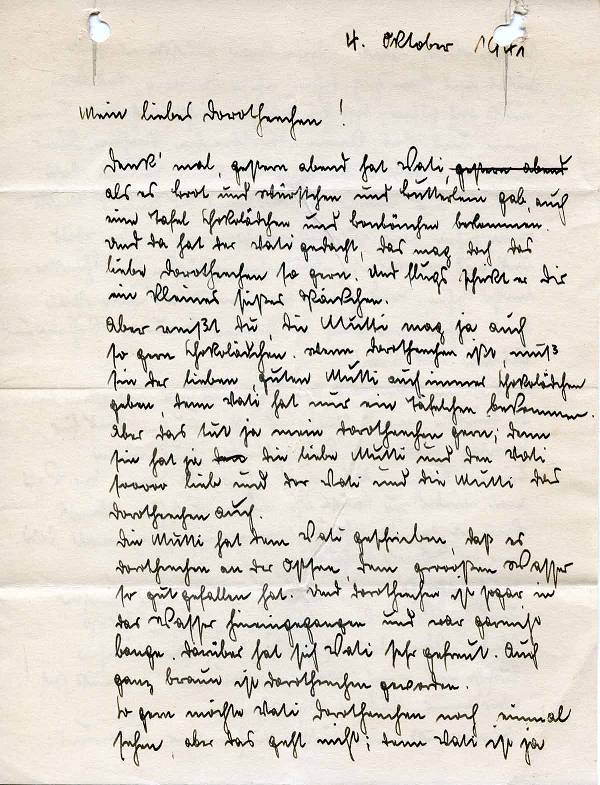 4. Oktober 1941
Mein liebes Dorotheechen!
Denk' mal, gestern abend hat Vati, gestern abend
als es Brot und Würstchen und Butterlein gab, auch
eine Tafel Schokolädchen und Bonbönchen bekommen.
Und da hat der Vati gedacht, das mag doch das
liebe Dorotheechen so gern. Und flugs schickt er dir
ein kleines süßes Päckchen.
Aber weißt du, die Mutti mag ja auch
so gern Schokolädchen. Wenn Dorotheechen ißt, muß
sie der lieben, guten Mutti auch immer Schokolädchen
geben, denn Vati hat nur ein Täfelchen bekommen.
Aber das tut ja mein Dorotheechen gern; denn
sie hat ja die liebe Mutti und den Vati
sooooo lieb und der Vati und die Mutti das
Dorotheechen auch.
Die Mutti hat dem Vati geschrieben, daß es
Dorotheechen an der Ostsee, dem grooßen Wasser
so gut gefallen hat. Und Dorotheechen ist sogar in
das Wasser hineingegangen und war garnicht
bange. Darüber hat sich Vati sehr gefreut. Auch
ganz braun ist Dorotheechen geworden.
So gern möchte Vati Dorotheechen noch einmal
sehen, aber das geht nicht; denn Vati ist ja